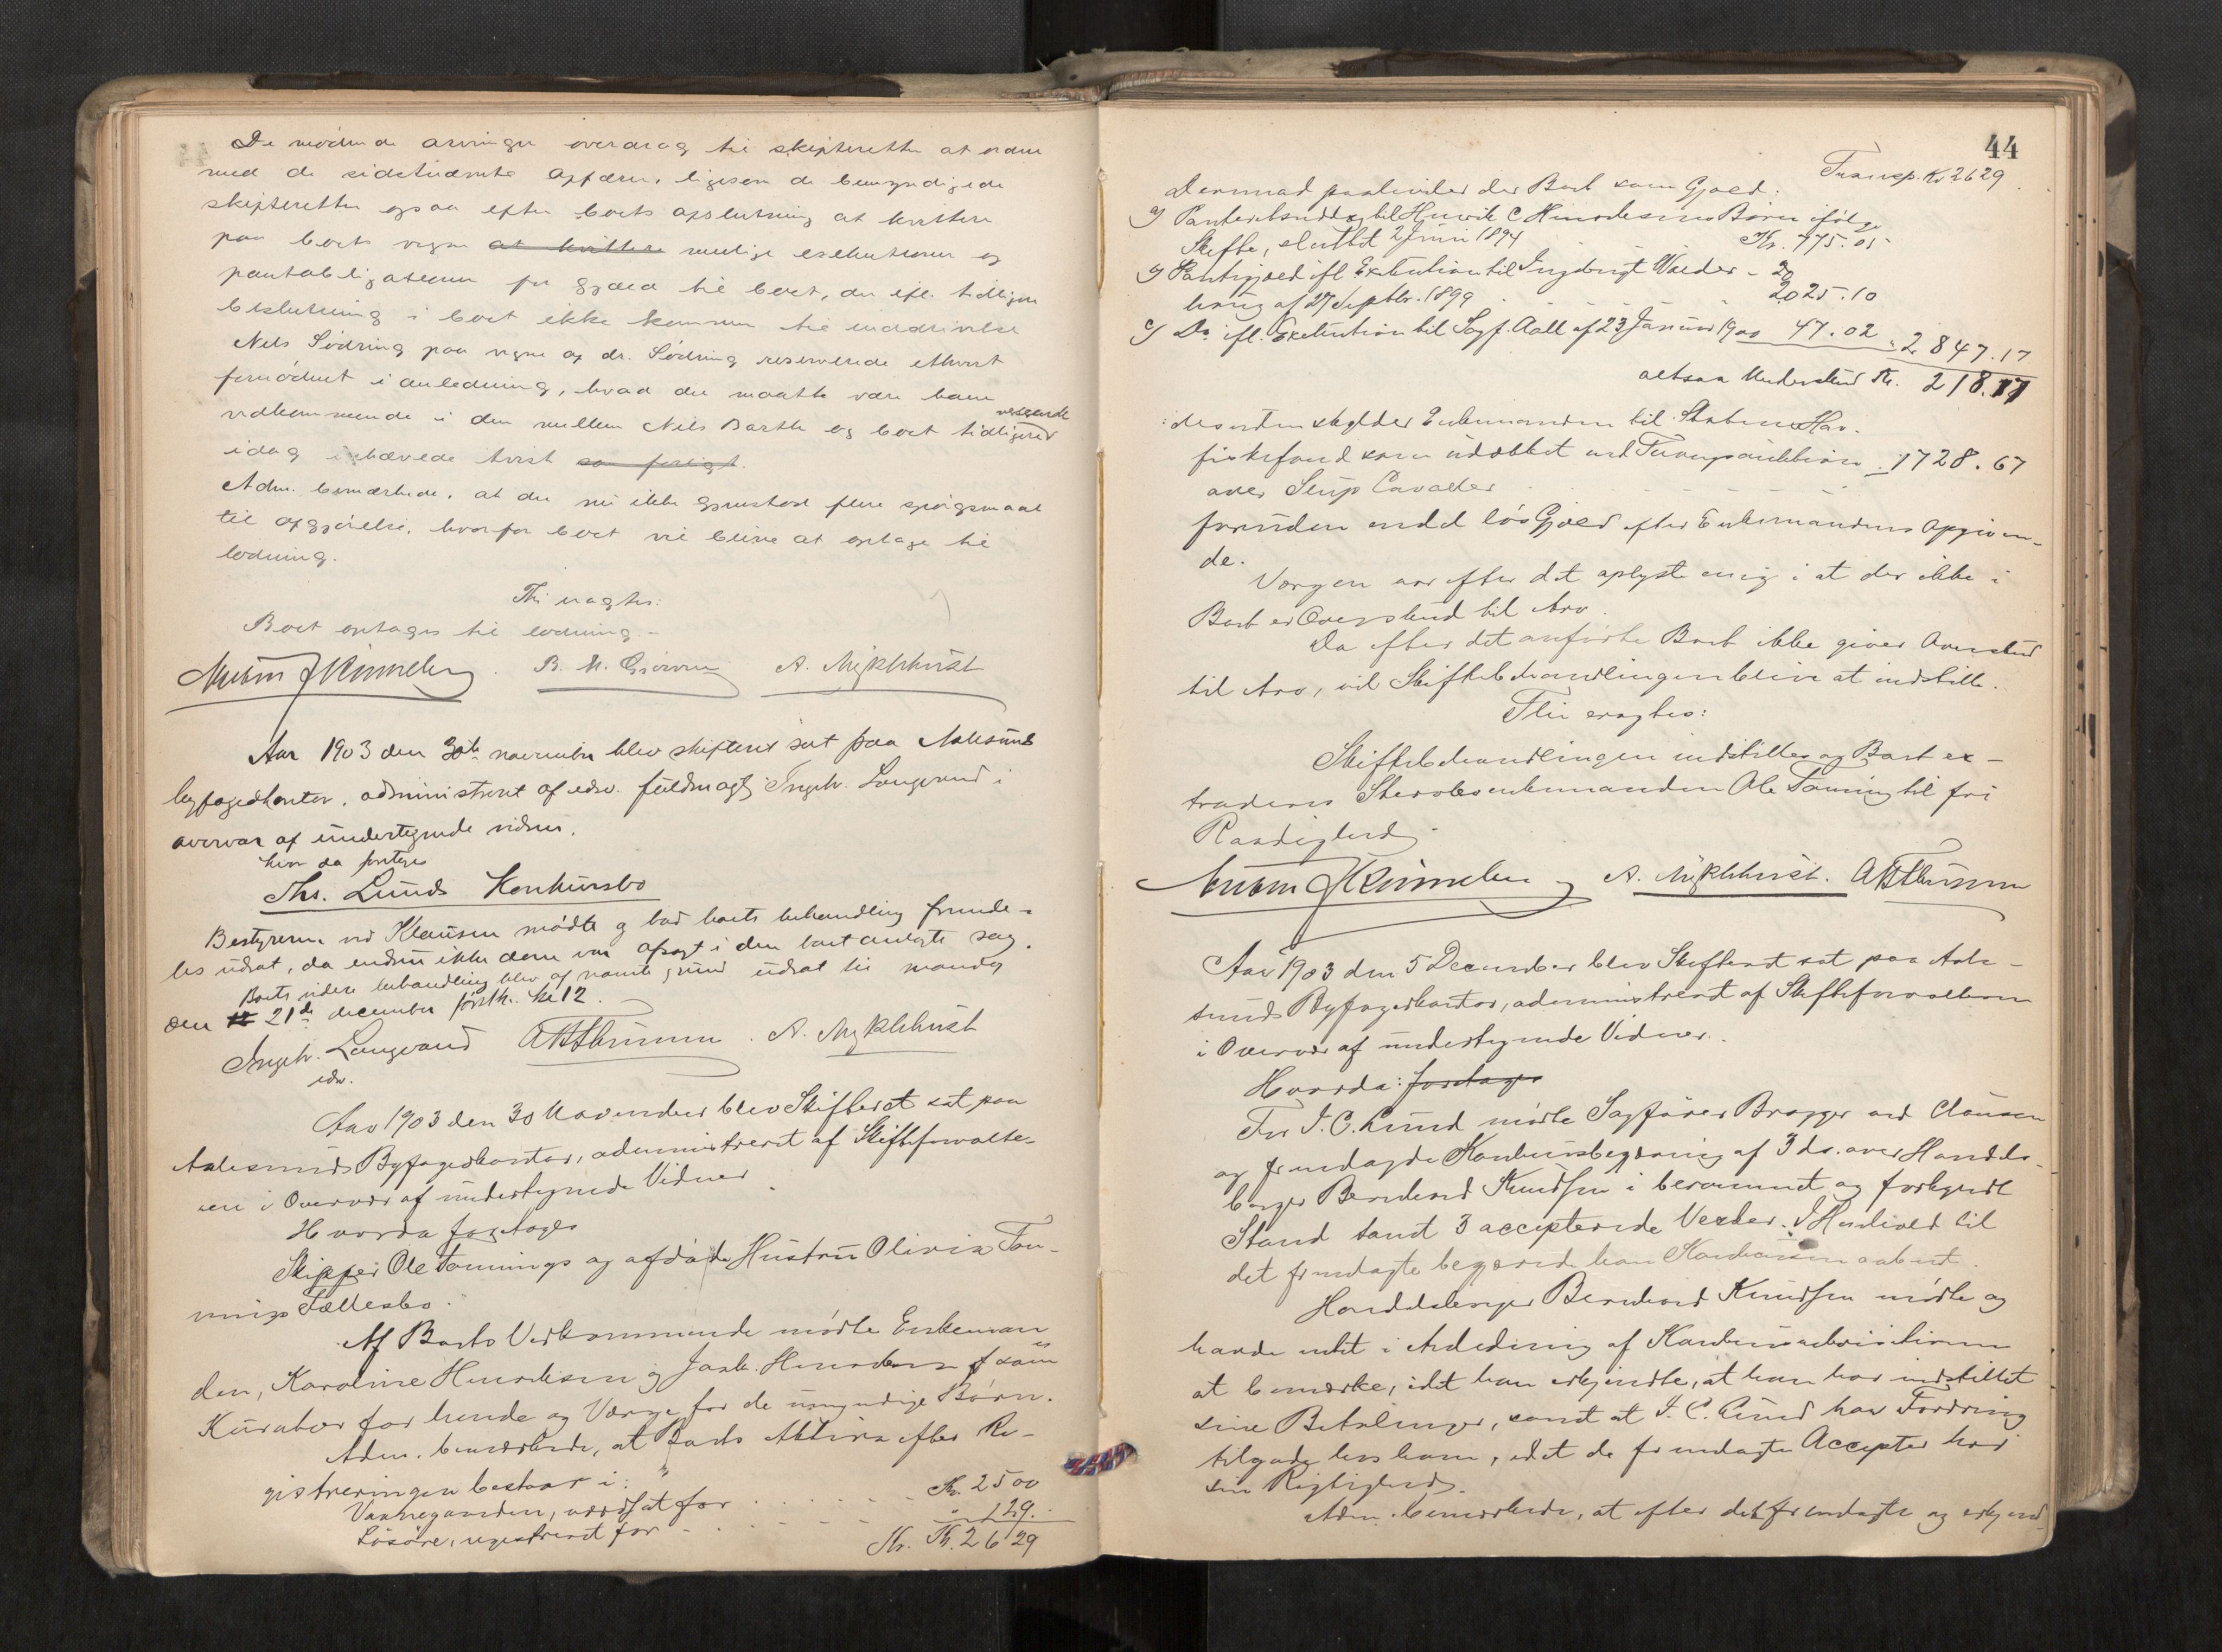 De mødende arvinger overdrog til skifteretten at ordne
med de sidstnævnte affærer, ligesom de bemyndigede
skifteretten ogsaa efter boets afslutning at kvittere
paa boets vegne at kvittere mulige exekutioner og
pantobligationer for gjæld til boet, der ifl. tidligere
beslutning i boet ikke kommer til inddrivelse
Nels Sødring paa vegne af dr. Sødring reserverede ethvert
fornødent i anledning, hvad der maatte være ham
vedkommende i den mellem Nils Barth og boet tidligere verserende
idag hævede tvist som forligt.
Adm. bemærkede, at der nu ikke gjenstod flere spørgsmaal
til afgjørelse, hvorfor boet vil blive at optage til
lodning.
Thi eragtes:
Boet optages til lodning.-
B. M. Gjørven A. Myklebust
Aar 1903 den 30te november blev skifteret sat paa Aalesunds
byfogedkontor, administreret af edsv. fuldmægtig Ingebr. Langvand i
overvær af undertegnede vidner.
hvor da foretoges
Ths. Lunds Konkursbo
Bestyreren ved Klausen mødte og bad boets behandling fremde-
les udsat, da endnu ikke dom var afsagt i den boet anlagte sag.
Boets videre behandling blev af nævnte grund udsat til mandag
den 21de december førstk. kl 12.
Ingebr. Langvand A. Myklebust
edsv.
Aar 1903 den 30 November blev Skifteret sat paa
Aalesunds Byfogedkontor, administreret af Skifteforvalte-
ren i Overvær af undertegnede Vidner.
Hvorda foretoges
Skipper Ole Tønnings og afdøde Hustru Olivia Tøn-
nings Fællesbo.
Af Boets Vedkommende mødte Enkeman
den, Karoline Henriksen og Jack. Henriksen som
Kurator for hende og Værge for de umyndige Børn.
Adm. bemærkede, at Boets Aktiva efter Re-
gistreringen bestaar i:
Vaaningen, værdsat for . . . . . . Kr. 2500
Løsøre, registreret for - . . . . . " 129.
Kr. 2629
44
Transp. Kr 2629.
Dermed paahviler der Boet som Gjæld:
a) Panteheftelse til Henrik C Henriksens Børn ifølge
Skifte, sluttet 2 Juni 1894 Kr. 775.05
b) Pantegjæld ifl. Exekution til Ingebrigt Walder-
haug af 27 Septbr. 1899 . . . . 2025.10
c) Do. ifl. Exekution til Sagf. Aall af 23 Januar 1900 47.02 " 2847.17
altsaa Underskud Kr. 218.17
: desuden skylder Enkemanden til Statens Hav-
fiskefond som udækket ved Tvangsauktion 1728.67
over Skip Cavalier . . . . .
foruden endel løs Gjæld efter Enkemandens Opgiven-
de.
Værgen var efter det oplyste enig i at der ikke i
Boet er Overskud til Arv.
Da efter det anførte Boet ikke giver Overskud
til Arv, vil Skiftebehandlingen blive at indstille.
Thi eragtes:
Skiftebehandlingen indstilles og Boet ex-
traderes Stervboenkemanden Ole Tønning til fri
Raadighed.
A. Myklebust.
Aar 1903 den 5 December blev Skifteret sat paa Aale-
sunds Byfogedkontor, administreret af Skifteforvalteren
i Overvær af undertegnede Vidner.
Hvorda: foretoges
For J. C. Lund mødte Sagfører Brøgger ved Clausen
og fremlagde Konkursbegjæring af 3 ds. over Handels-
borger Bernhard Knudsen i berammet og forkyndt
Stand samt 3 accepterede Vexler. I Henhold til
det fremlagte begjærede han Konkursen aabnet.
Handelsborger Bernhard Knudsen mødte og
havde intet i Anledning af Konkursrekvisitionen
at bemærke, idet han erkjendte, at han har indstillet
sine Betalinger, samt at J. C. Lund har Fordring
tilgode hos ham, idet de fremlagte Accepter har
sin Rigtighed.
Adm. bemærkede, at efter det fremlagte og erkjend-